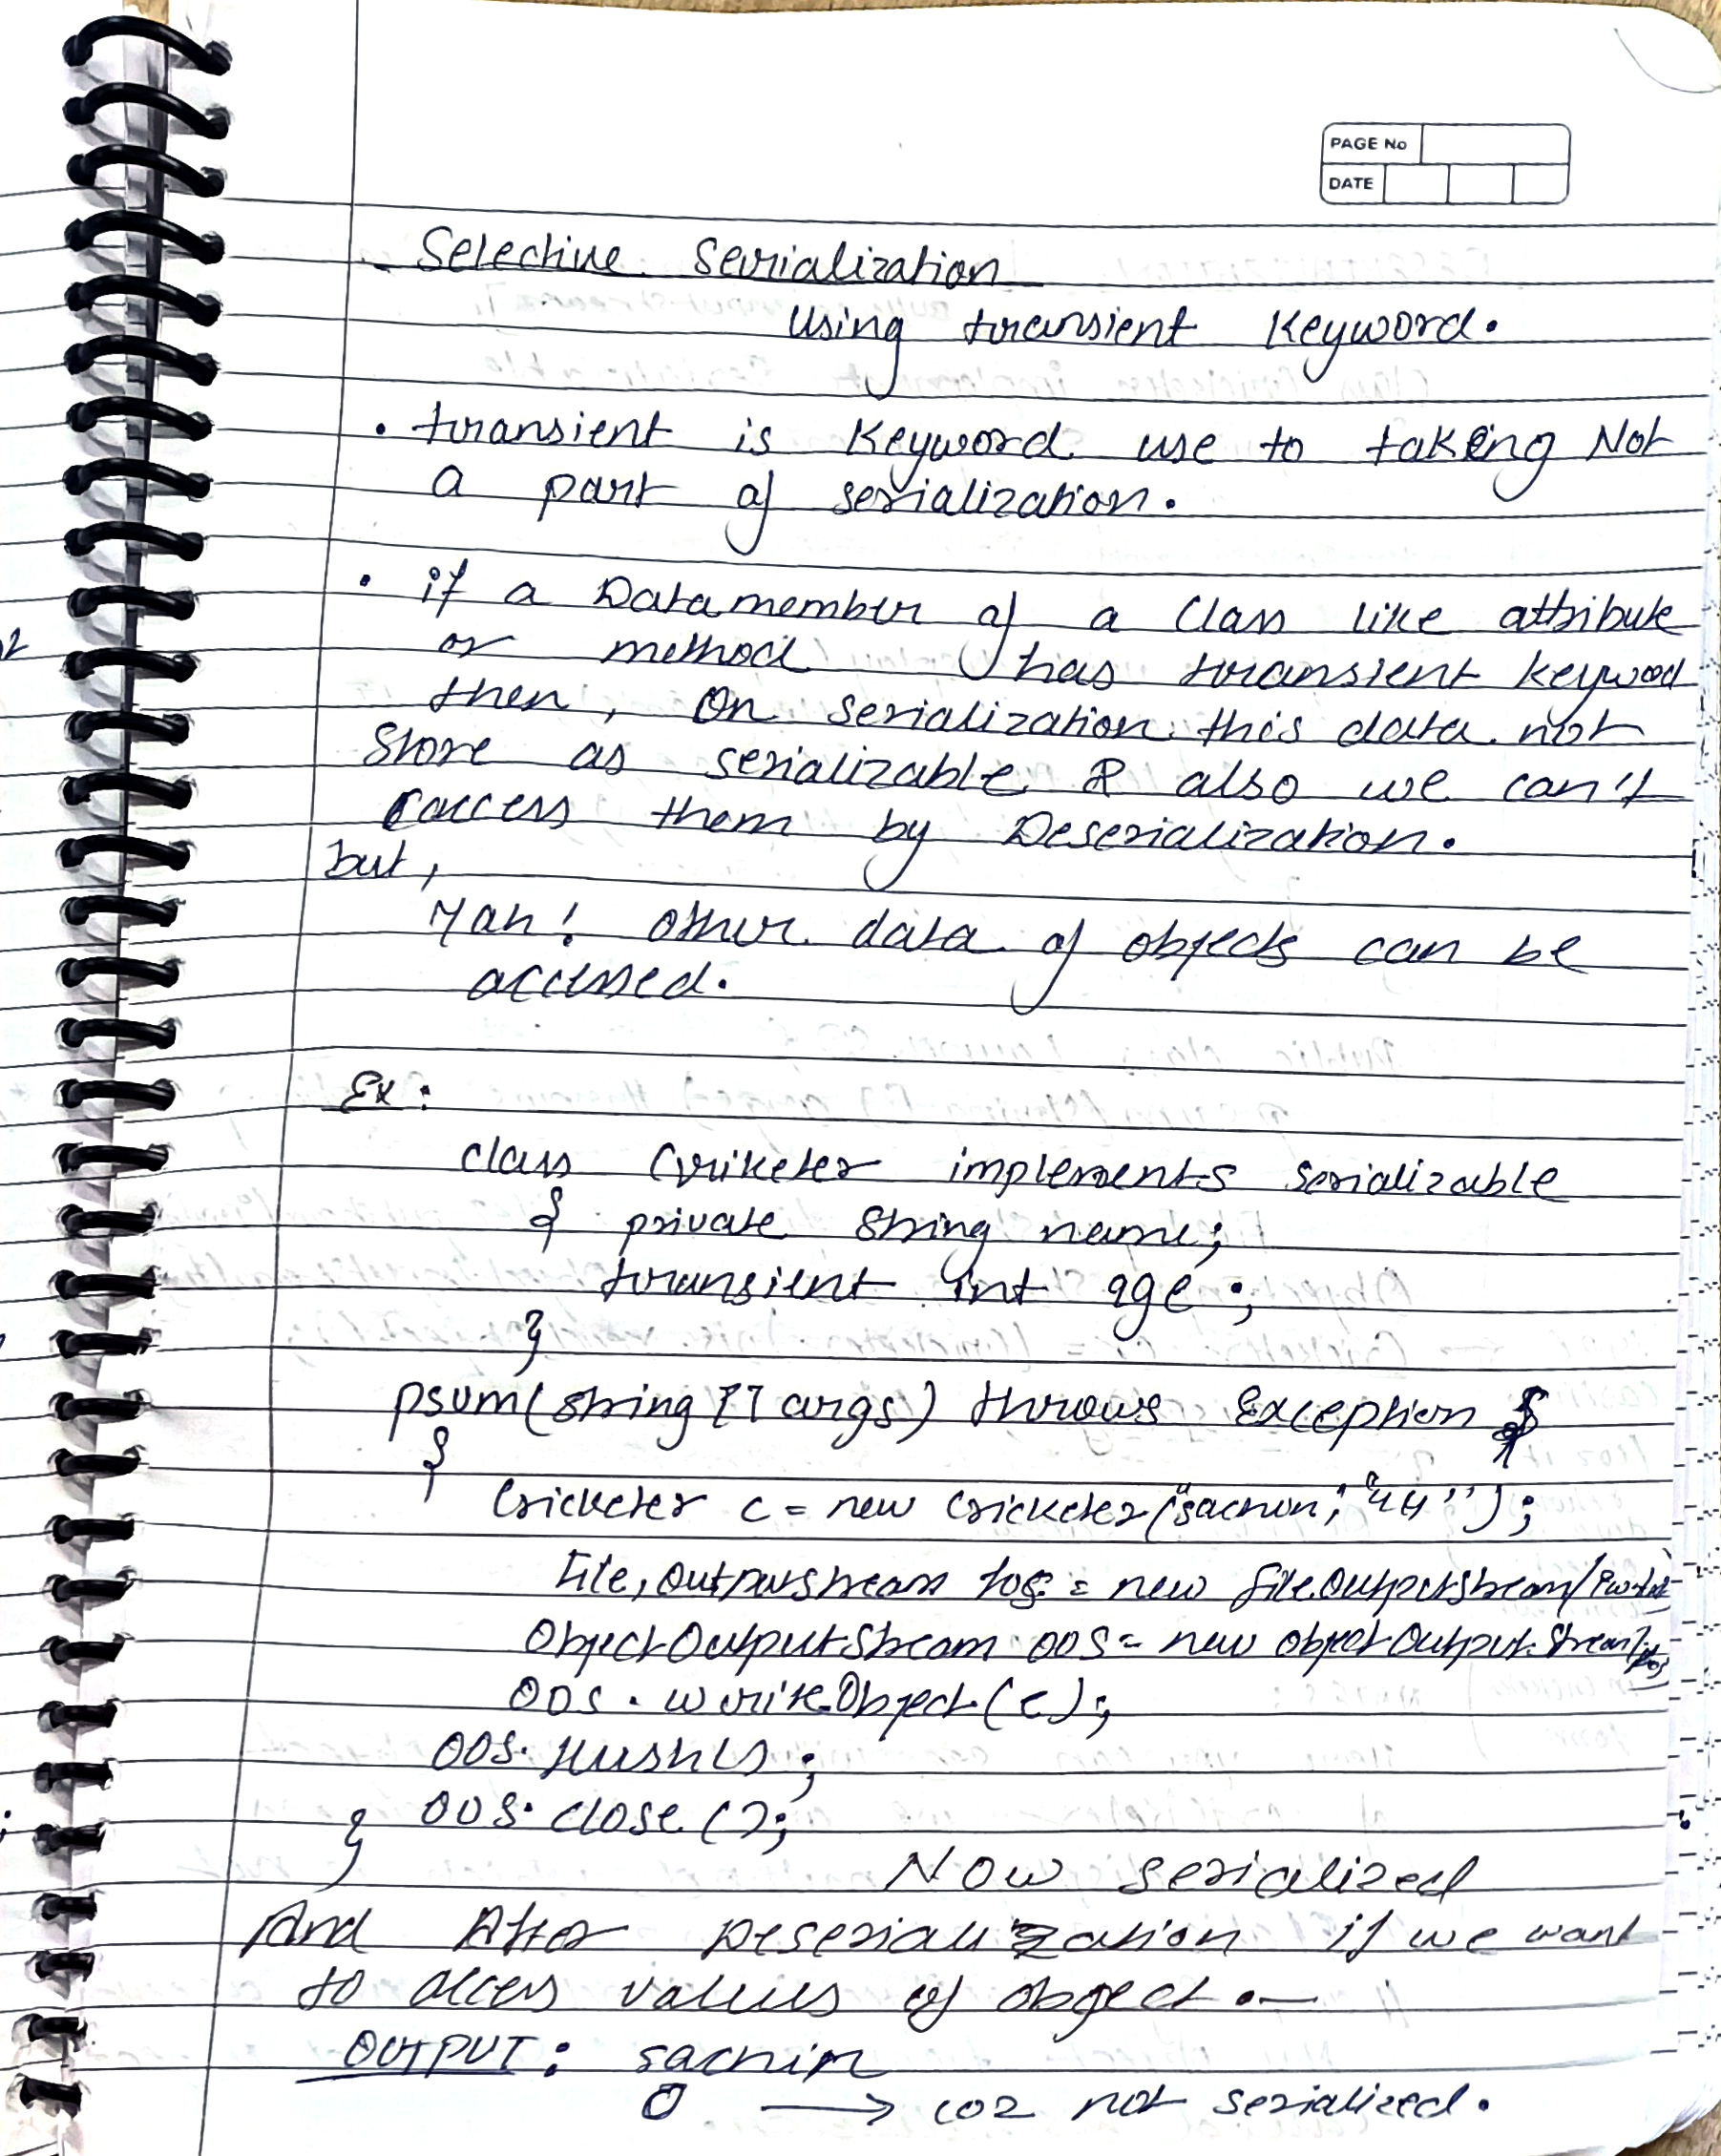 PAGE No
DATE
Selective Serialization
Using transient Keyword.
• transient is Keyword use to taking Not
a part of serialization.
• if a Datamember of a Class like attribute
or method has transient keywod
then, On serialization this data not
Store as serializable & also we can't
access them by Deserialization.
but,
Yah! other data of objects can be
accessed.
Ex:
class Criketer implements serializable
{ private String name;
transient int age;
}
psvm(string [] args) throws Exception
{
Cricketer c = new Cricketer("sachin", "44");
File,Outputstream fos = new file.Outputstream(
ObjectOutputStream oos = new objectOutputStream(fos
oos.writeObject(c);
oos.flush();
oos.close();
}
Now serialized
And After Deserialization if we want
to access values of object.—
OUTPUT: sachin
0 → coz not serialized.